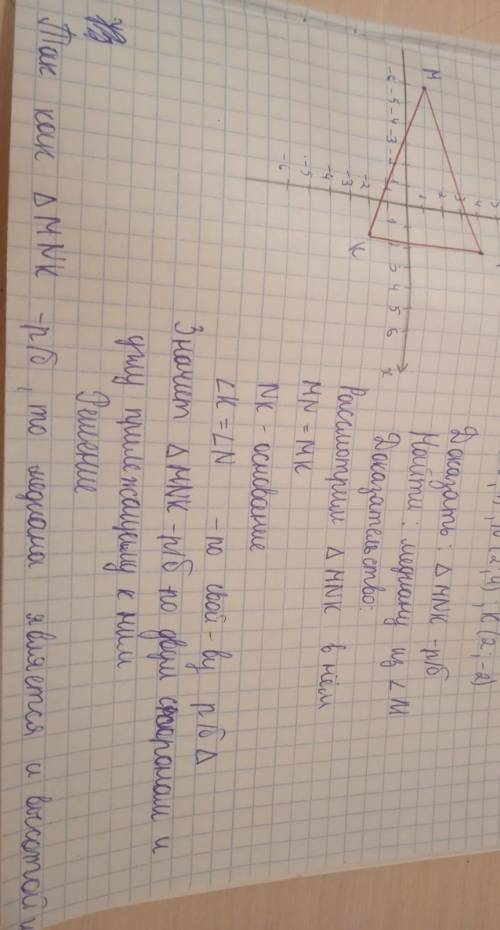 N(2;4), K(2;-2)
Доказать: △MNK -р/б
Найти: медиану из ∠M
Доказательство:
Рассмотрим △MNK в нём
MN = MK
NK - основание
∠K = ∠N - по свой-ву р/б △
Значит △MNK -р/б по двум сторонам и
углу прилежащему к ним
Решение
Так как △MNK -р/б, то медиана является и высотой и
M
K
x
-6 -5 -4 -3 -2
1 2 3 4 5 6
1 2 3 4
-2 -3 -4 -5 -6